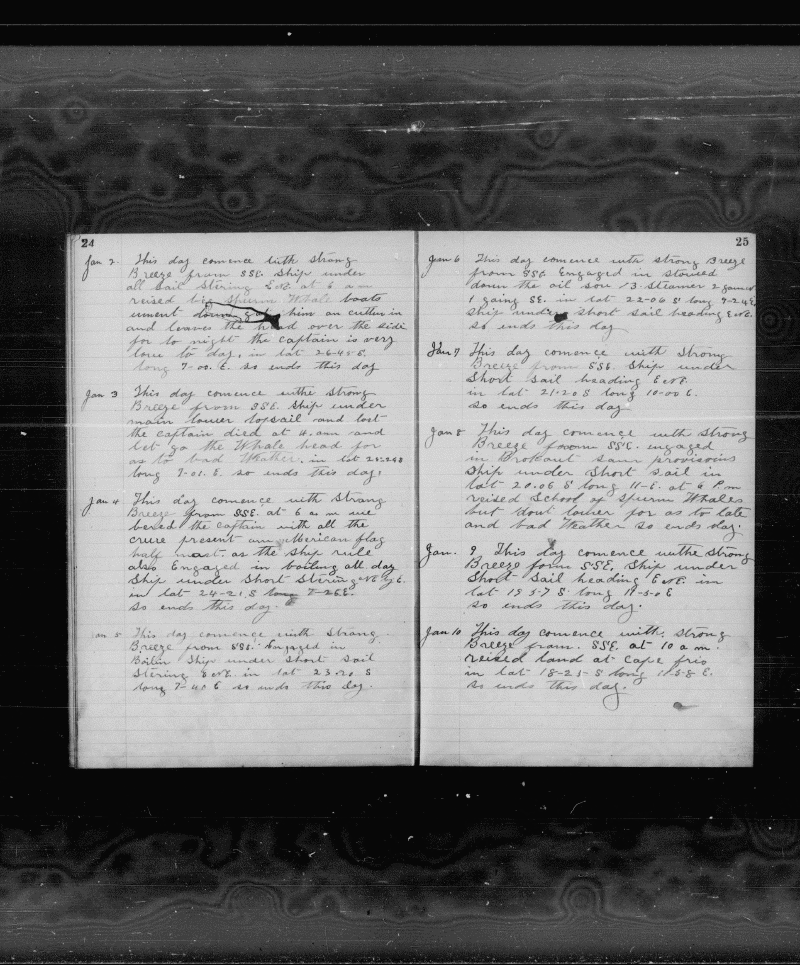 24
Jan 2 This day comence with strong
Breeze from SSE. Ship under
all Sail Stering E.N.E. at 6 a m
reised big Spurm Whale boats
went down got him an cutten in
and leaves the head over the side
for to night the captain is very
low to day. in lat 26-45 S.
long 7-00. E. so ends this day
Jan 3 This day comence withe strong
Breeze from SSE. Ship under
main lower topsail and lost
the captain died at 4. am and
let go the Whale head for
as to bad Weather. in lat
long 7-01. E. so ends this day.
Jan 4 This day comence with strang
Breeze from SSE. at 6 a m we
bered the captain with all the
crue present an Merican flag
half mast. as the ship rule
also Engaged in boiling all day
Ship under Short Stering
in lat 24-21 S long 7-25 E.
so ends this day.
an 5 This day comence with strang
Breeze from SSE. Engaged in
Boilin Ship under Short Sail
Stering E.N.E. in lat 23.20 S
long 7-40 E so ends this day.
25
Jan 6 This day comence with strong Breeze
from SSE Engaged in stowed
down the oil 3 Steamer 2
1 going SE. in lat 22-06 S long
Ship under short sail heading
so ends this day
Jan 7 This day comence with Strong
Breeze from SSE. Ship under
Short Sail heading E.N.E.
in lat 21-20 S long 10-00 E.
so ends this day
Jan 8 This day comence with strong
Breeze from SSE. engaged
in Brokout Sam provisoins
Ship under Short Sail in
lat 20.06 S long 11-E. at 6 P.m
reised School of Spurm Whales
but dont lower for as to late
and bad Weather so ends day.
Jan. 9 This day comence withe Strong
Breeze form SSE. Ship under
Short Sail heading E.N.E. in
lat 19 5-7 S. long 11-5-0 E
so ends this day.
Jan 10 This day comence with. Strong
Breeze from. SSE. at 10 a m.
reised land at Cape frio
in lat 18-23-S long 11-5-8 E.
so ends this day.